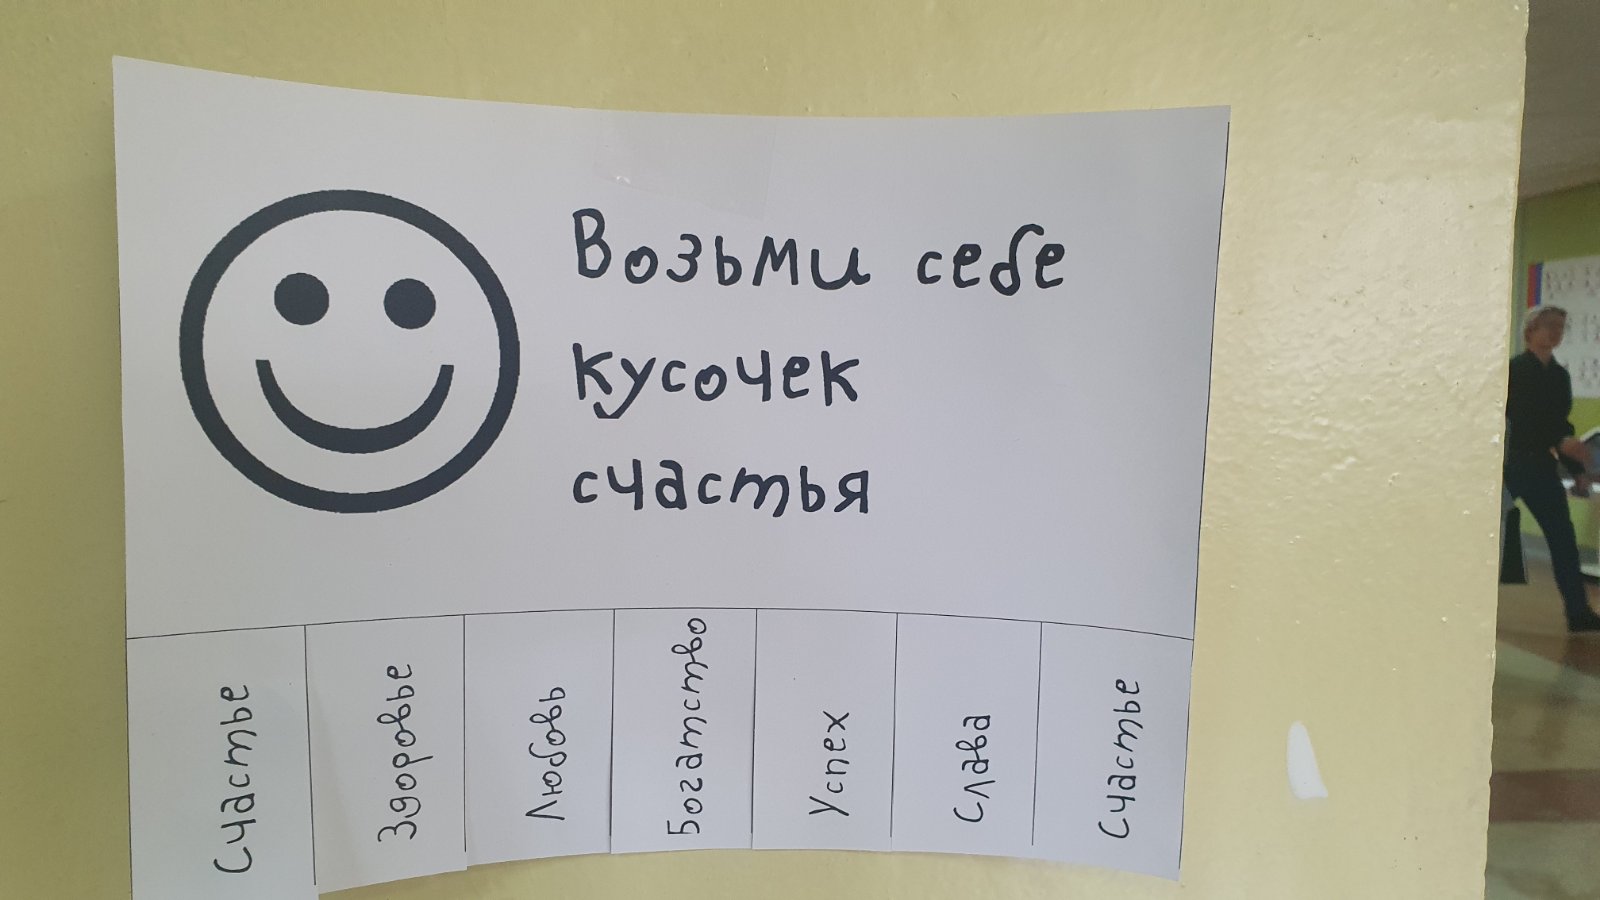 Возьми себе
кусочек
счастья
Счастье
Здоровье
Любовь
Богатство
Успех
Слава
Счастье